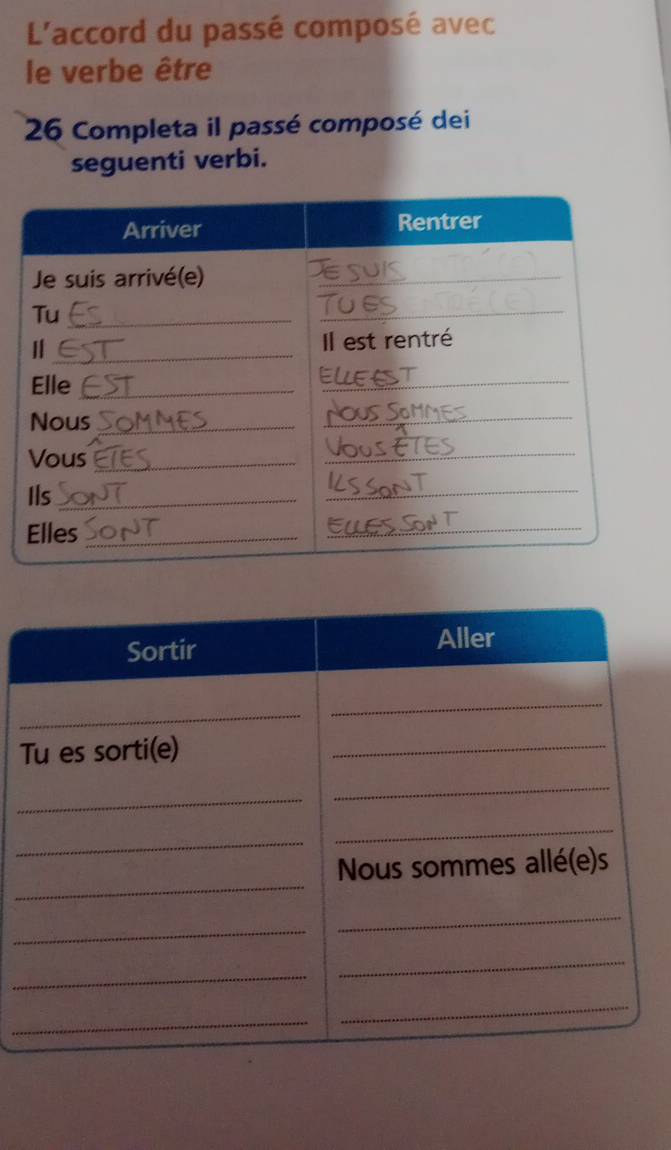 L'accord du passé composé avec
le verbe être
26 Completa il passé composé dei
seguenti verbi.
Arriver Rentrer
Je suis arrivé(e) JE SUIS
Tu ES TU ES
Il EST Il est rentré
Elle EST ELLE EST
Nous SOMMES NOUS SOMMES
Vous ÊTES VOUS ÊTES
Ils SONT ILS SONT
Elles SONT ELLES SONT
Sortir Aller
Tu es sorti(e)
Nous sommes allé(e)s